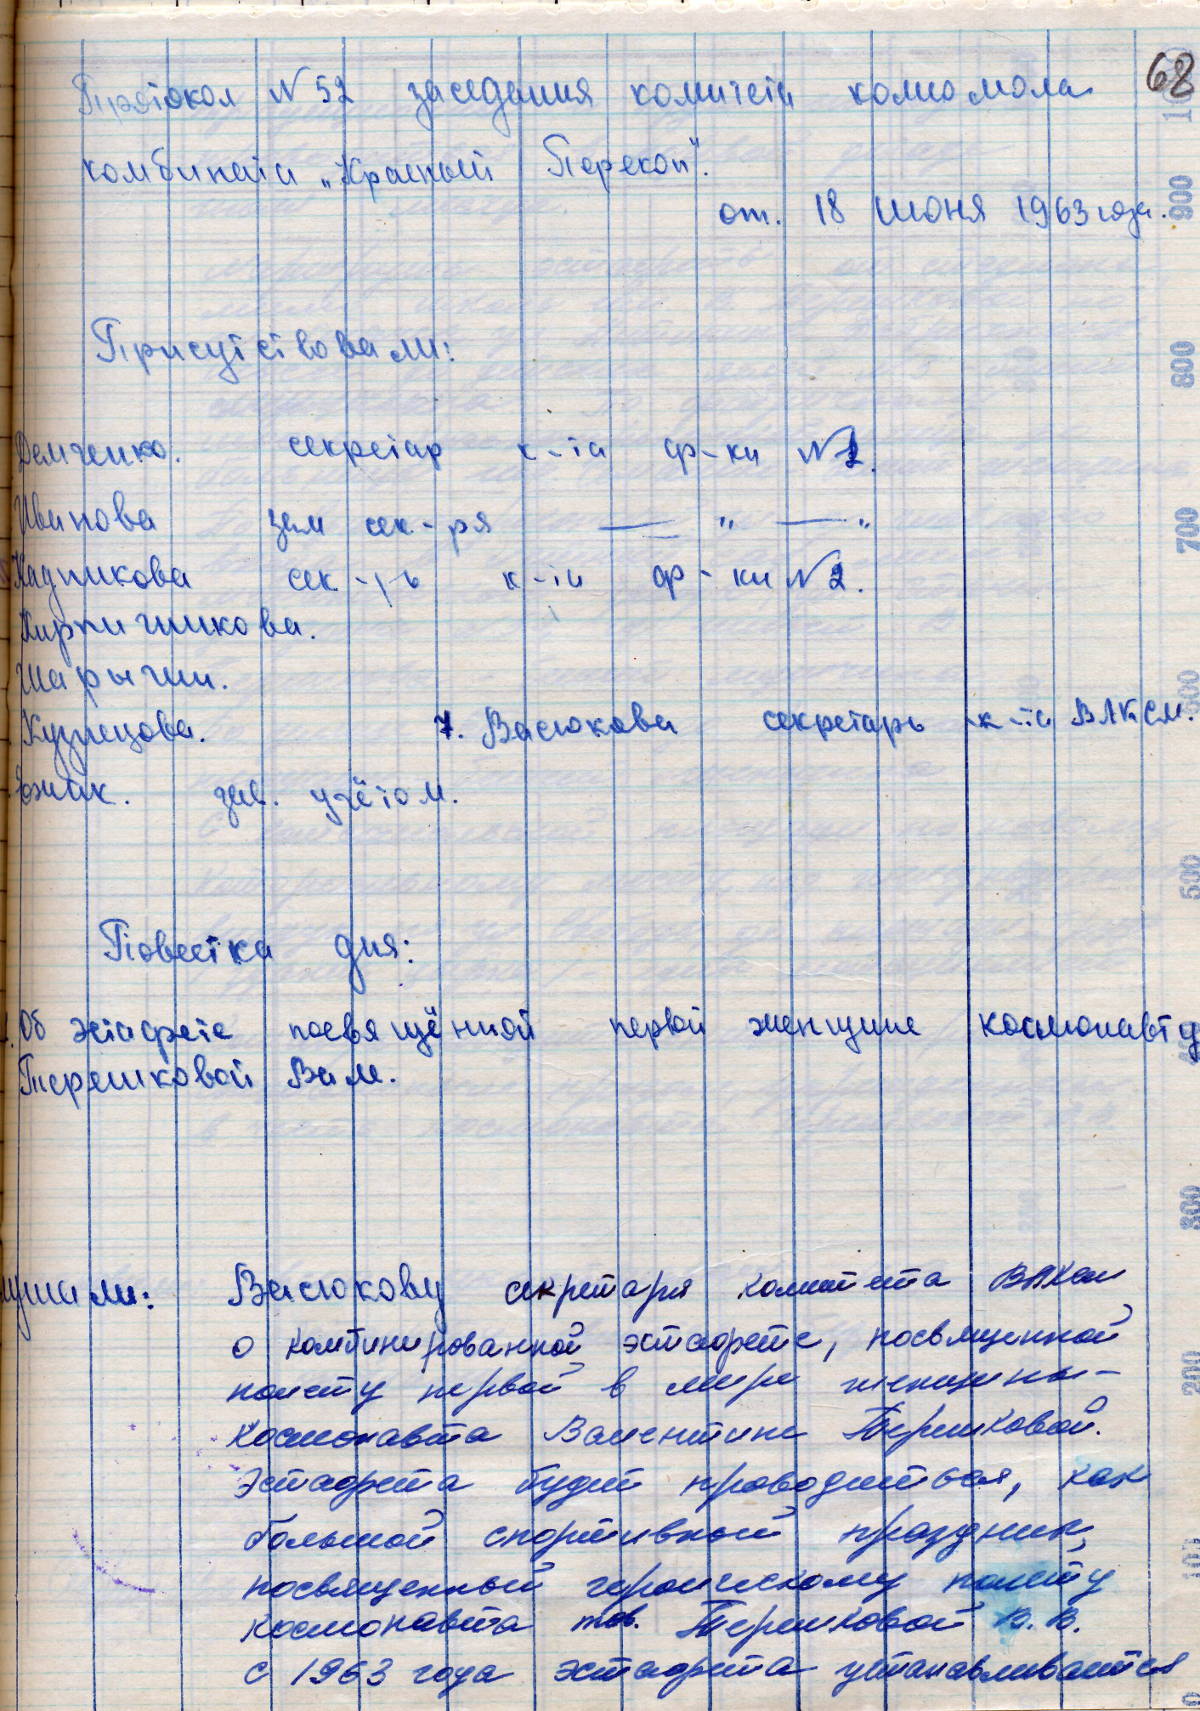 68
Протокол N 52 заседания комитета комсомола
комбината „Красный Перекоп".
от. 18 июня 1963 года.
Присутствовали:
Демченко. секретар к-та ф-ки N 1.
Иванова зам сек-ря — " — "
Кадникова сек-рь к-та ф-ки N 2.
Кирпичникова.
Шарыгин.
Кузнецова. 7. Васюкова секретарь к-та ВЛКСМ.
зав. учётом.
Повестка дня:
Об эстафете посвящённой первой женщине космонавту
Терешковой Вал.
ушали: Васюкову секретаря комитета ВЛКСМ
о комбинированной эстафете, посвященной
полету первой в мире женщины-
космонавта Валентине Терешковой.
Эстафета будет проводиться, как
большой спортивный праздник,
посвященный героическому полету
космонавта тов. Терешковой В. В.
с 1963 года эстафета устанавливается
1000
900
800
700
500
300
200
100